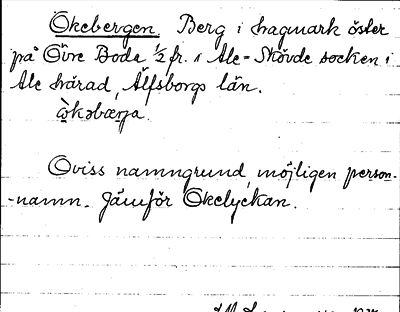 Ökebergen. Berg i hagmark öster
på Övre Boda 1/2 fr. i Ale-Skövde socken i
Ale härad, Älfsborgs län.
ö̀kəbærja.
Oviss namngrund, möjligen person-
-namn. Jämför Ökelyckan.